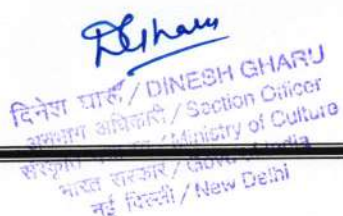 दिनेश घारू / DINESH GHARU
अनुभाग अधिकारी / Section Officer
संस्कृति / Ministry of Culture
भारत सरकार / Govt. of India
नई दिल्ली / New Delhi